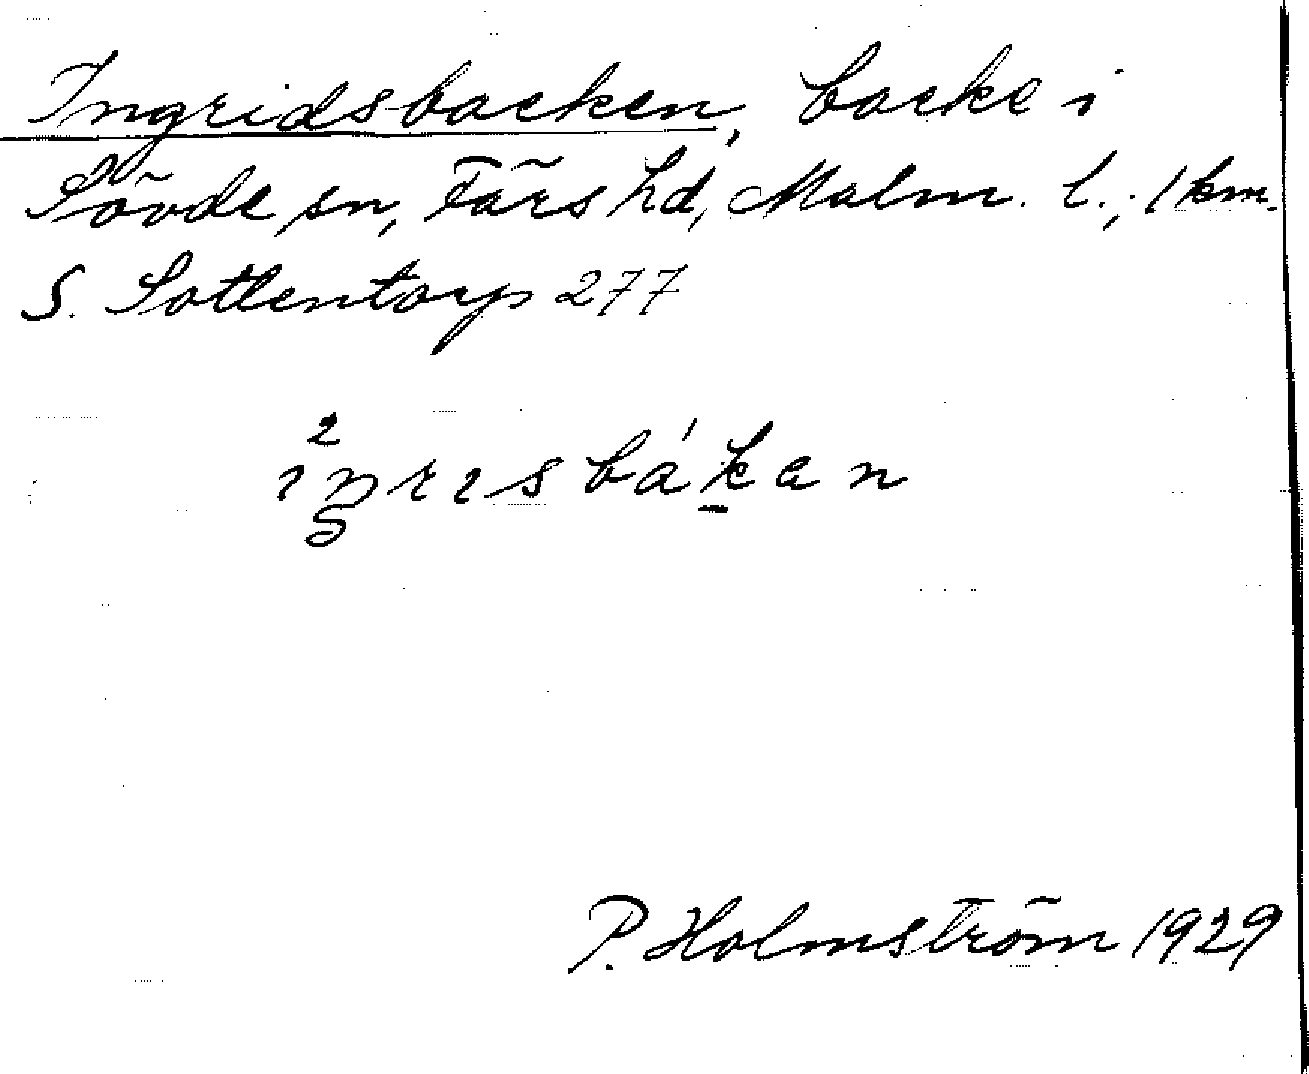 Ingridsbacken, backe i
Sövde sn, Färs hd, Malm. l.; 1 km.
S. Sottentorp 277
ı²ŋrısbákan
P. Holmström 1929